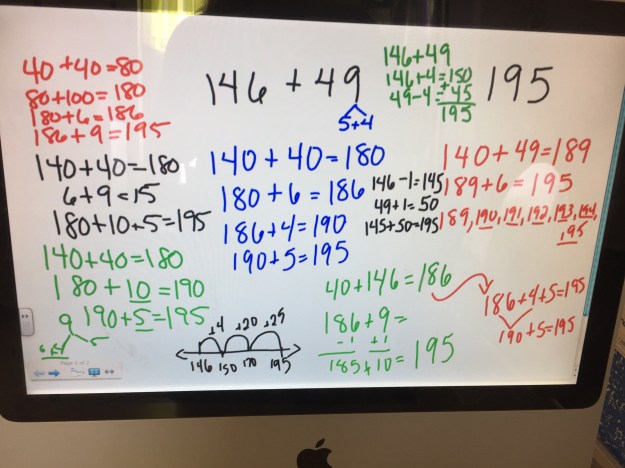 40+40=80
80+100=180
180+6=186
186+9=195
146+49
5+4
146+49
146+4=150
49-4=+45
195
195
140+40=180
6+9=15
180+10+5=195
140+40=180
180+6=186
186+4=190
190+5=195
146-1=145
49+1=50
145+50=195
140+49=189
189+6=195
189, 190, 191, 192, 193, 194,
195
140+40=180
180+10=190
9 190+5=195
5
+4 +20 +25
146 150 170 195
40+146=186
186+9=
-1 +1
185+10=195
186+4+5=195
190+5=195
Page 2 of 2